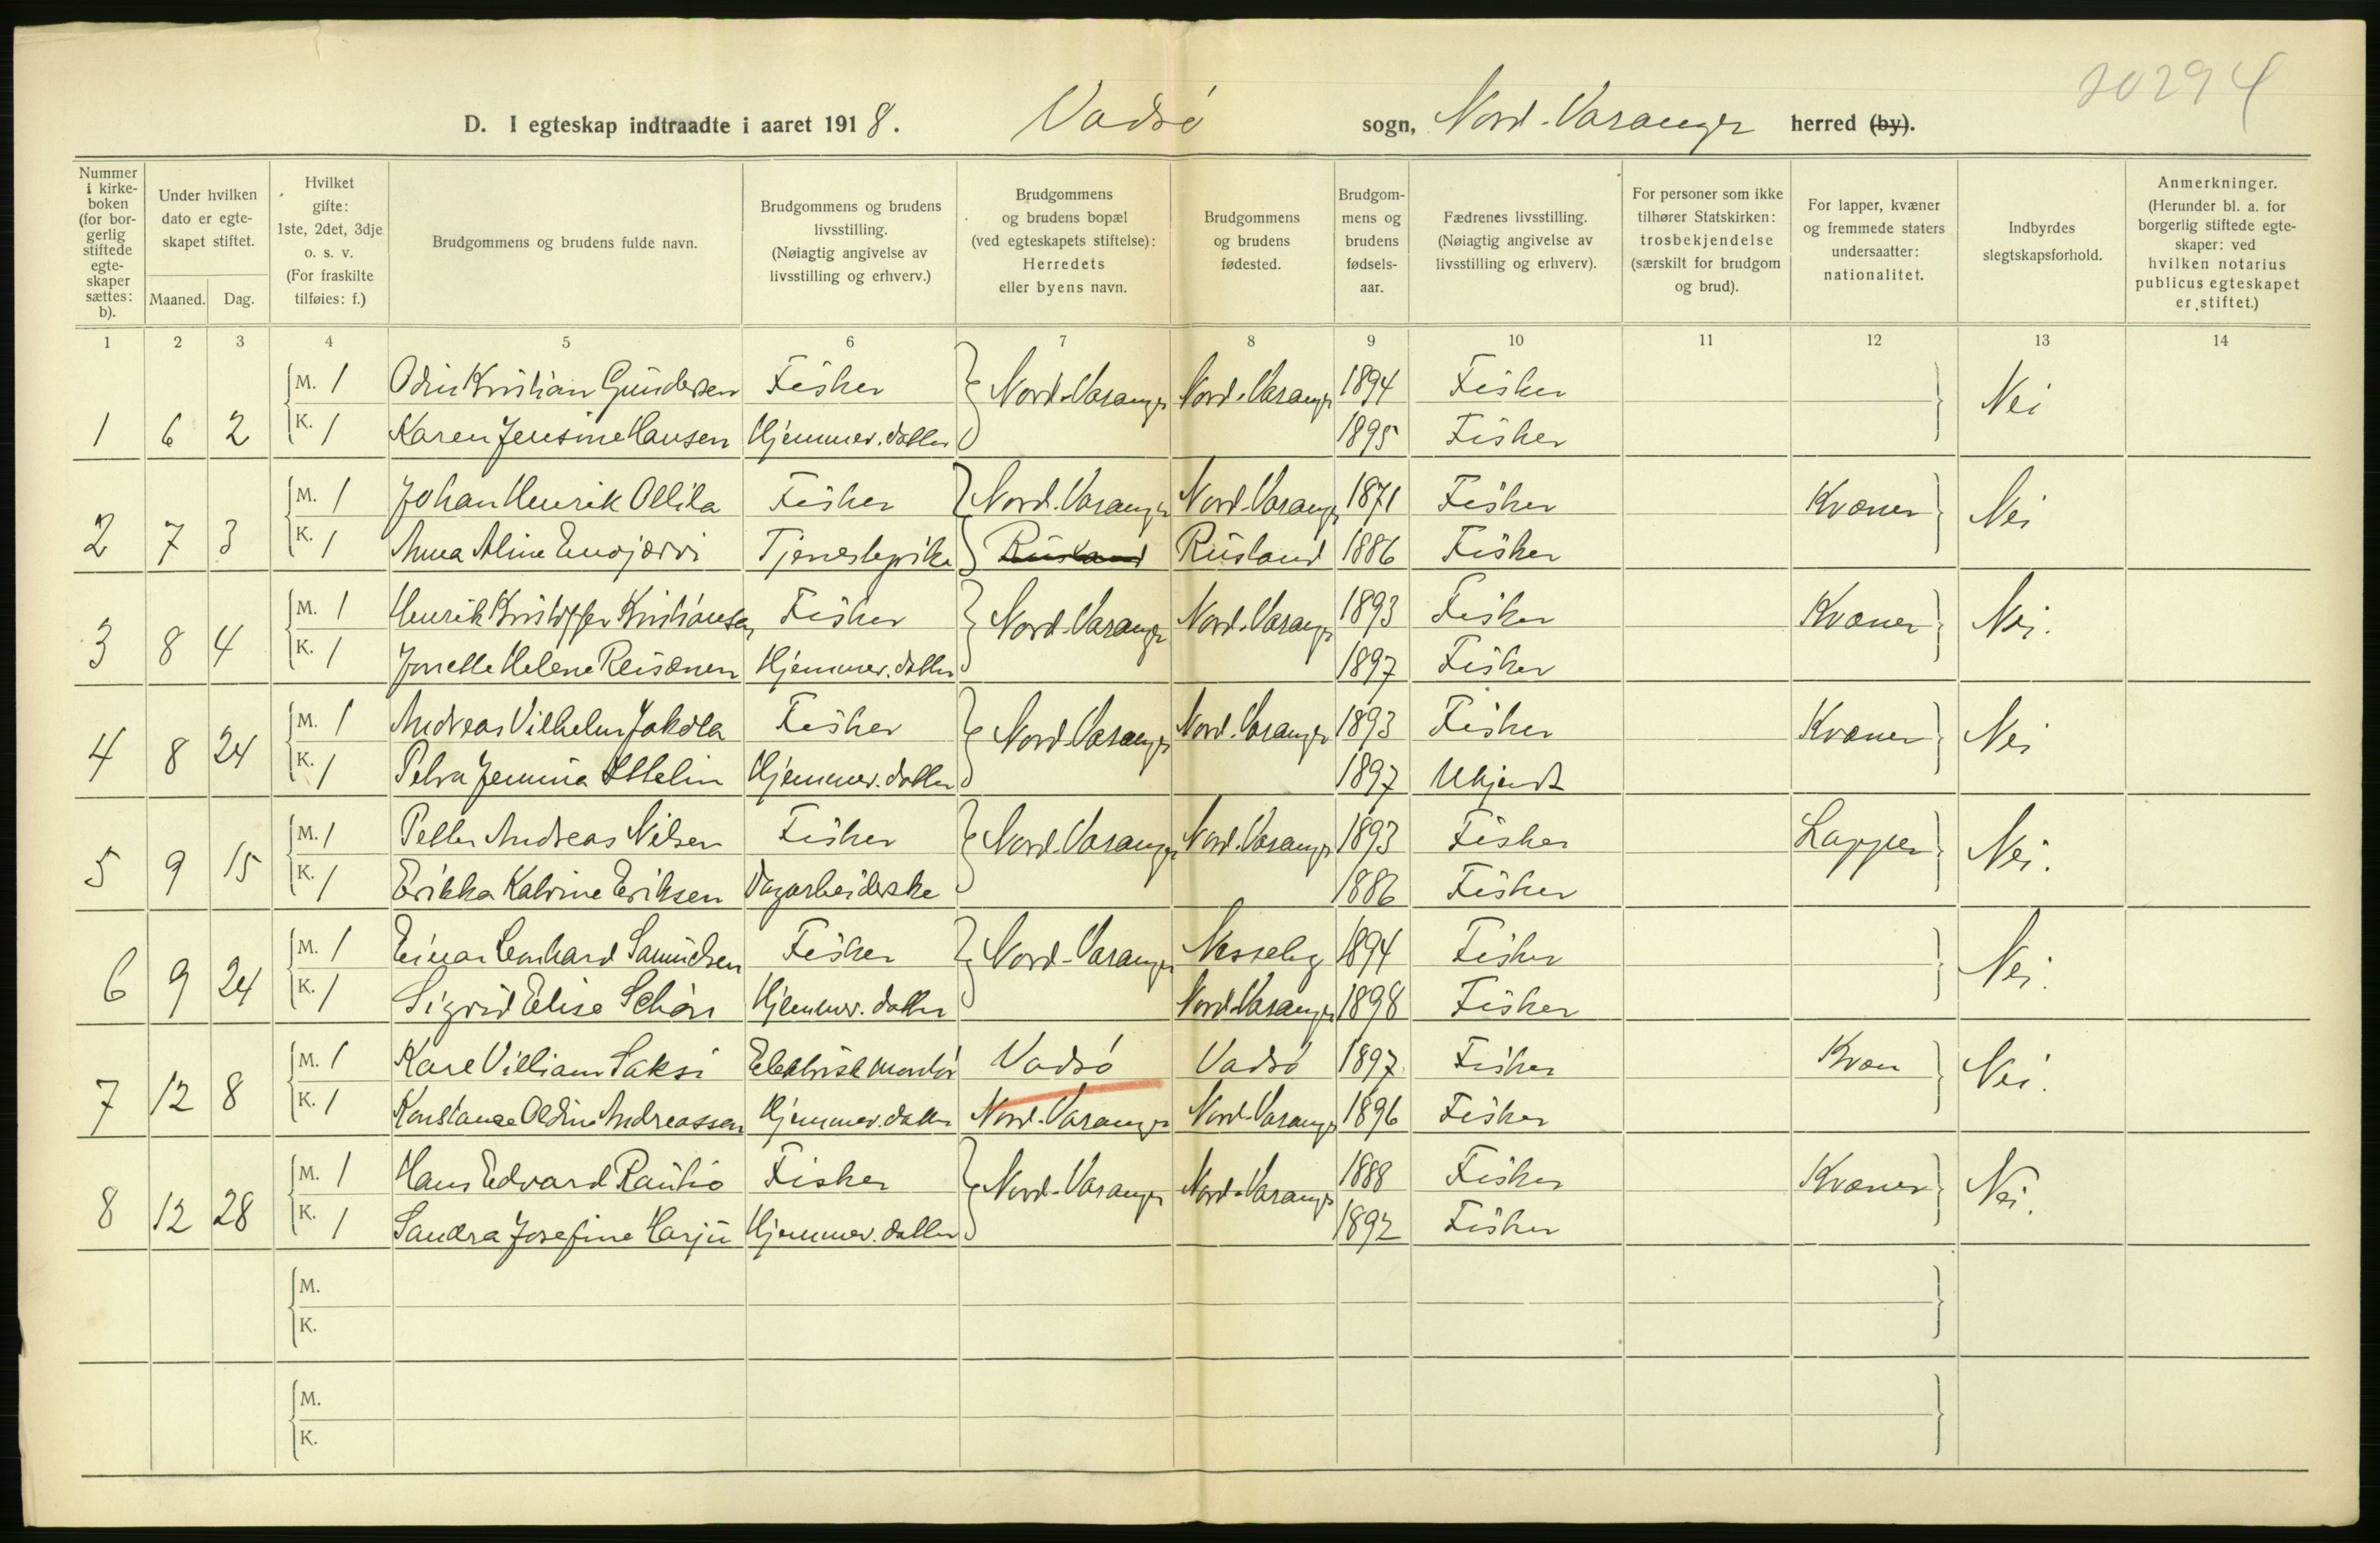 20294
D. I egteskap indtraadte i aaret 1918. Vadsø sogn, Nord-Varanger herred (by).
Nummer i kirke-boken (for bor-gerlig stiftede egte-skaper sættes: b). Under hvilken dato er egte-skapet stiftet. Maaned. Dag. Hvilket gifte: 1ste, 2det, 3dje o. s. v. (For fraskilte tilføies: f.) Brudgommens og brudens fulde navn. Brudgommens og brudens livsstilling. (Nøiagtig angivelse av livsstilling og erhverv.) Brudgommens og brudens bopæl (ved egteskapets stiftelse): Herredets eller byens navn. Brudgommens og brudens fødested. Brudgom-mens og brudens fødsels-aar. Fædrenes livsstilling. (Nøiagtig angivelse av livsstilling og erhverv). For personer som ikke tilhører Statskirken: trosbekjendelse (særskilt for brudgom og brud). For lapper, kvæner og fremmede staters undersaatter: nationalitet. Indbyrdes slegtskapsforhold. Anmerkninger. (Herunder bl. a. for borgerlig stiftede egte-skaper: ved hvilken notarius publicus egteskapet er stiftet.)
1 2 3 4 5 6 7 8 9 10 11 12 13 14
M. 1 Odin Kristian Gundersen Fisker Nord-Varanger Nord-Varanger 1894 Fisker Nei
1 6 2 K. 1 Karen Jensine Hansen Hjemmev. datter 1895 Fisker
M. 1 Johan Henrik Ollila Fisker Nord-Varanger Nord-Varanger 1871 Fisker Kvæner Nei
2 7 3 K. 1 Anna Aline Enojærvi Tjenestepike Rusland Rusland 1886 Fisker
M. 1 Henrik Kristoffer Kristiansen Fisker Nord-Varanger Nord-Varanger 1893 Fisker Kvæner Nei.
3 8 4 K. 1 Jonette Helene Reisænen Hjemmev. datter 1897 Fisker
M. 1 Andreas Vilhelm Jakola Fisker Nord-Varanger Nord-Varanger 1893 Fisker Kvæner Nei
4 8 24 K. 1 Petra Jemina Hjemmev. datter 1897 Ukjendt
M. 1 Petter Andreas Nilsen Fisker Nord-Varanger Nord-Varanger 1893 Fisker Lapper Nei.
5 9 15 K. 1 Erikka Katrine Eriksen Dagarbeiderske 1886 Fisker
M. 1 Einar Lenhard Samuelsen Fisker Nord-Varanger Nesseby 1894 Fisker Nei.
6 9 24 K. 1 Sigrid Elise Schøn Hjemmev. datter Nord-Varanger 1898 Fisker
M. 1 Karl Villiam Saksi Elektrisk montør Vadsø Vadsø 1897 Fisker Kvæn Nei.
7 12 8 K. 1 Konstanse Oldine Andreassen Hjemmev. datter Nord-Varanger Nord-Varanger 1896 Fisker
M. 1 Hans Edvard Rautio Fisker Nord-Varanger Nord-Varanger 1888 Fisker Kvæner Nei.
8 12 28 K. 1 Sandra Josefine Harju Hjemmev. datter 1892 Fisker
M.
K.
M.
K.